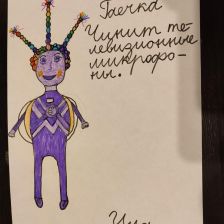 Гаечка
Чинит те-
левизионные
микрофо-
ны.